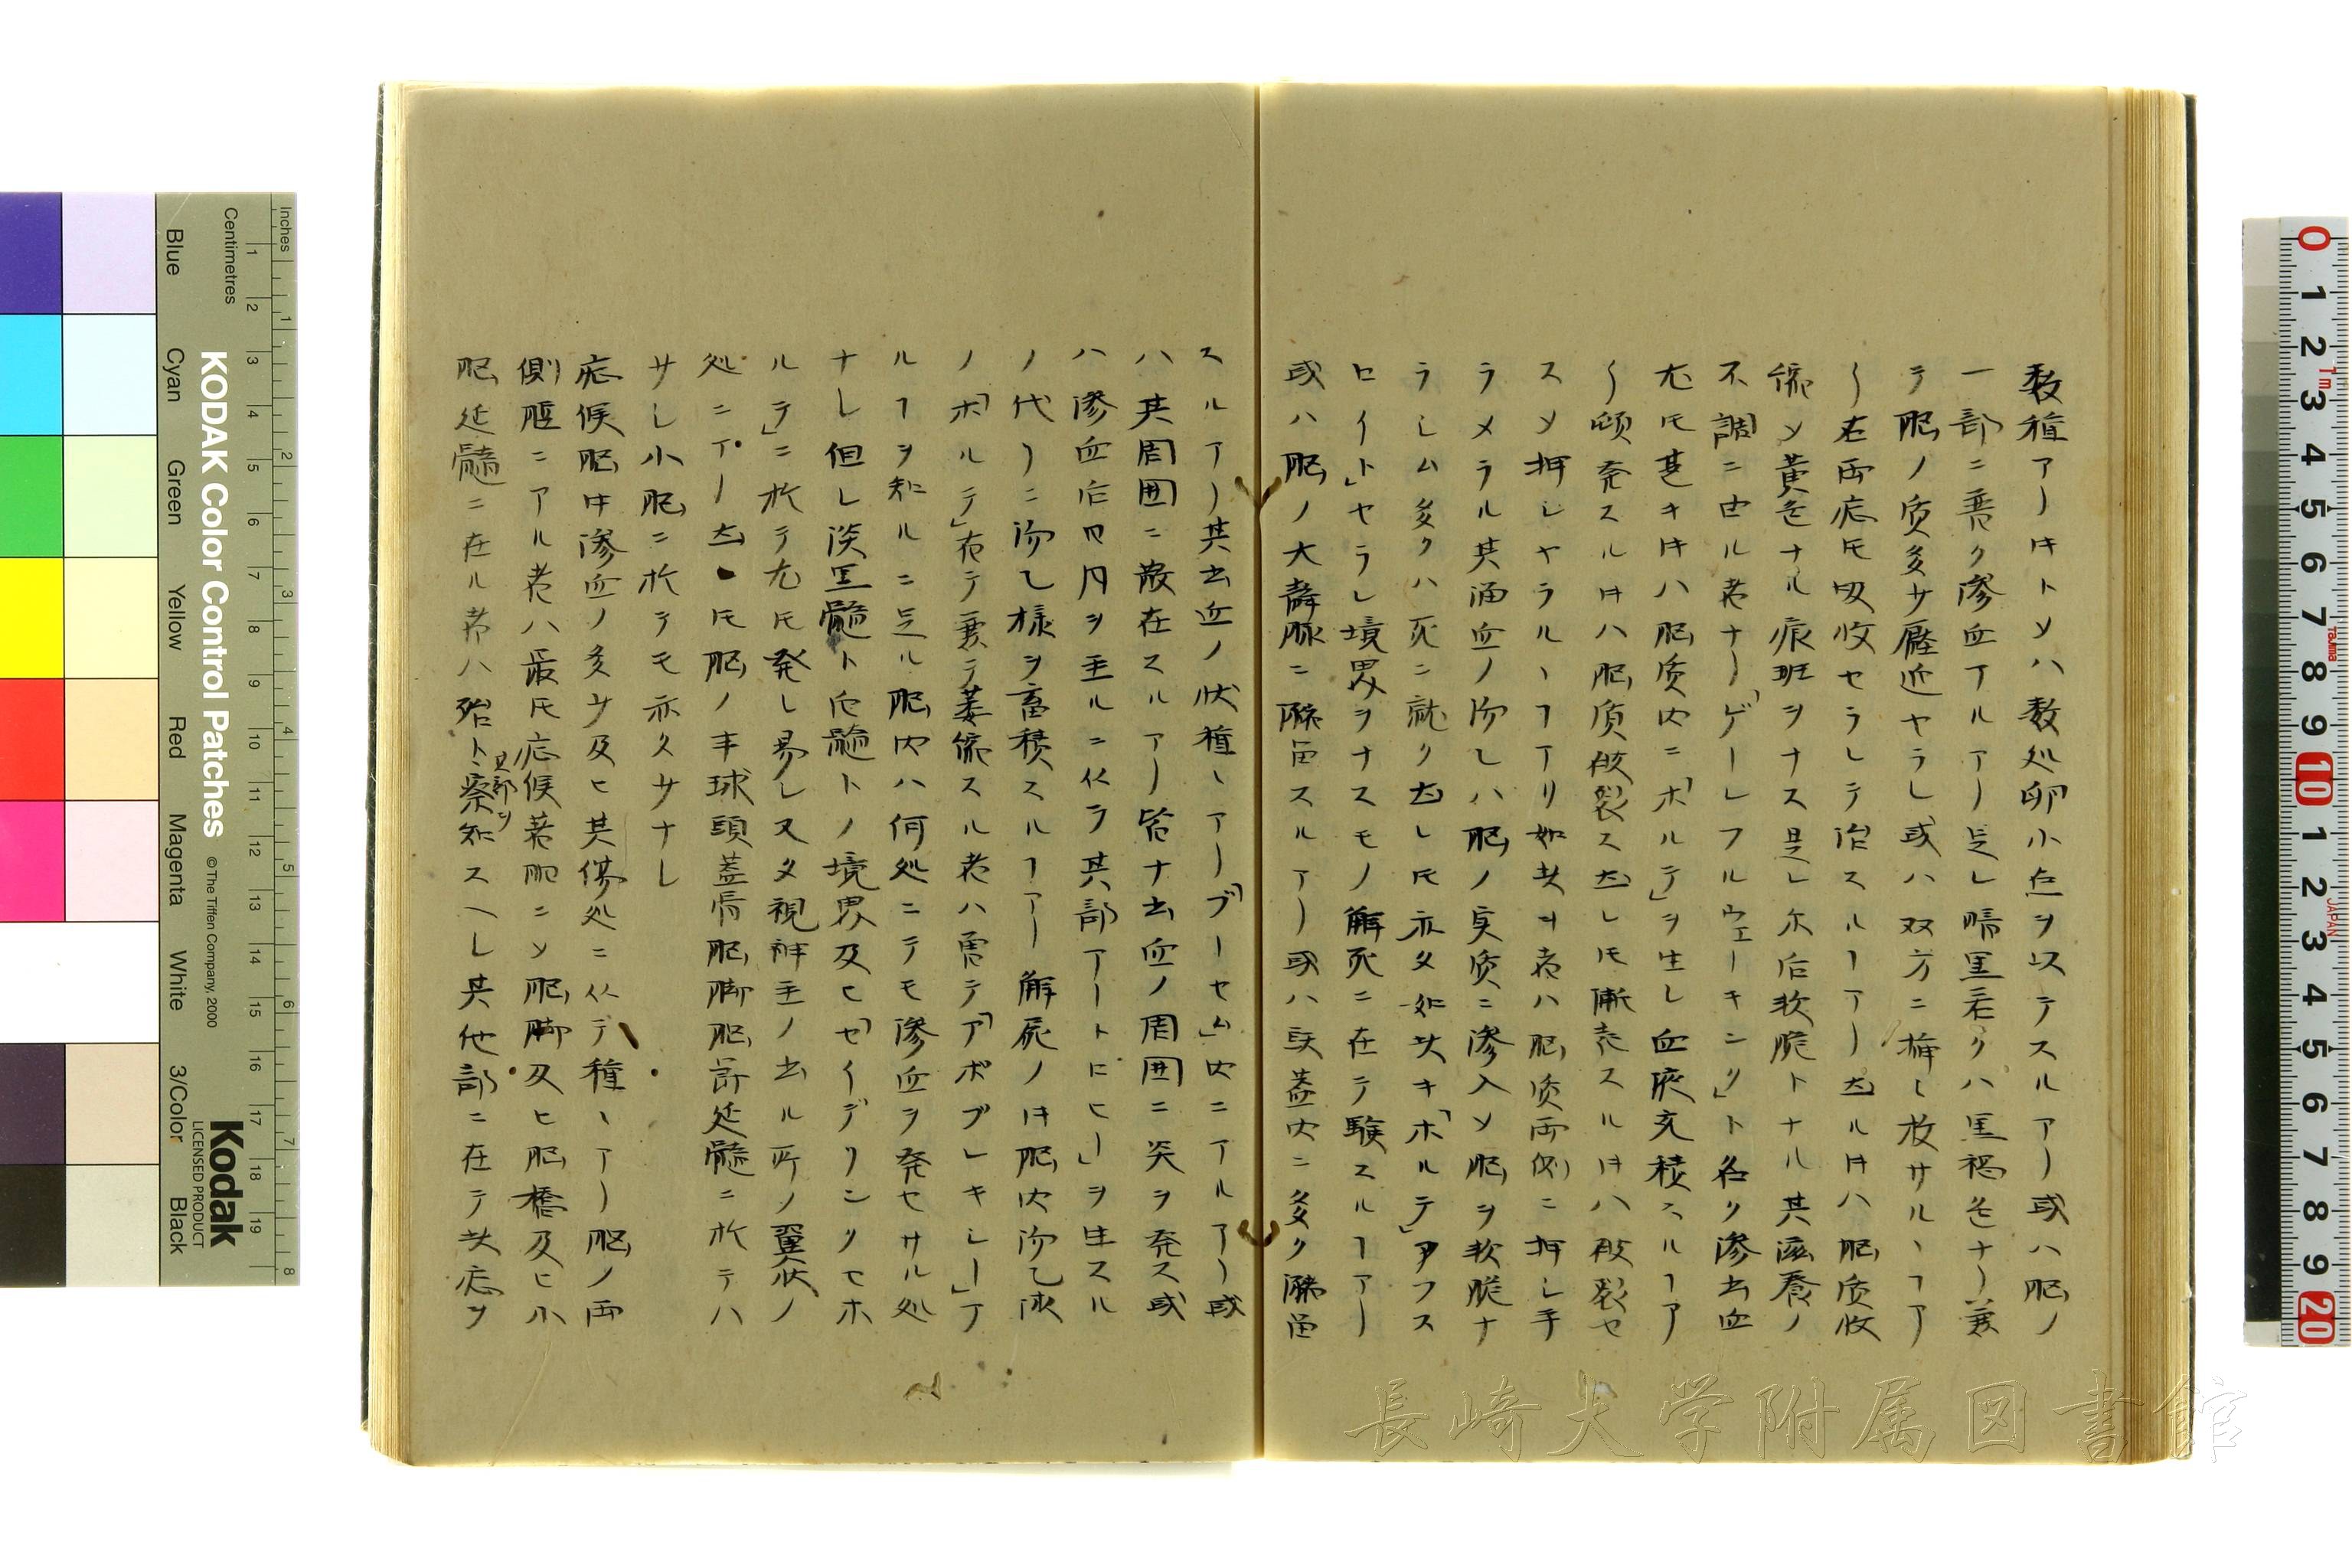 数種アー时トソハ数処卵小点ヲ以テスルアー或ハ脳ノ
一部ニ悪ク滲血アルアー是レ暗黒若クハ黒褐色ナー兼
テ脳ノ质多少壓迫セラレ或ハ双方ニ 放サルヽヿア
ー右両症氏吸收セラレテ治スルヿアー 时ハ脳质收
縮ソ黄色ナル痕斑ヲナス是レ尓后軟脆トナル其滋養ノ
不調ニ由ル者ナー「ゲーレフルウェーキンク」ト名ク滲出血
尤氏甚キ时ハ脳质内ニ「ホルテ」ヲ生レ血液充積スルヿア
ー頓発スル时ハ脳质破裂ス 氏漸若スル时ハ破裂セ
スソ押レヤラルヽヿアリ如此キ者ハ脳质両側ニ押レ手
ラメラル其涌血ノ沕レハ脳ノ実质ニ滲入ソ脳ヲ軟脆ナ
ラレム多クハ死ニ就ク 氏亦又如此キ「ホルテ」ヲフス
セイト」ヤラレ境界ヲナスモノ解死ニ在テ験スルヿアー
或ハ脳ノ大静脈ニ スルアー或ハ頭蓋内ニ多ク
スルアー其出血ノ状種ヽアー「ブーセム」内ニアルアー或
ハ其周囲ニ散在スルアー皆ナ出血ノ周囲ニ炎ヲ発ス或
ハ滲血后四月ヲ至ルニ从ラ其部アートヒヒー」ヲ生スル
ノ代リニ沕乙様ヲ畜積スルヿアー解屍ノ时脳内沕乙液
ノ「ホルテ」有テ裏テ萎縮スル者ハ曽テ「アポプレキレー」ア
ルヿヲ知ルニ足ル脳内ハ何処ニテモ滲血ヲ発セサル処
ナレ但レ淡黒髓ト白髓トノ境界及ヒ「セイデリンクセホ
ルテ」ニ於テ尤氏発レ易レ又タ視神主ノ出ル所ノ翼状ノ
処ニアー 氏脳ノ半球頭蓋骨脳脚脳 延髓ニ於テハ
サレ小脳ニ於テモ亦久サナレ
症候脳中滲血ノ多少及ヒ其傷処ニ从テ種ヽアー脳ノ両
側腔ニアル者ハ最氏症候著明ニソ脳脚及ヒ脳橋及ヒ小
脳延髓ニ在ル者ハ殆ト其部ヲ察知スヘレ其他部ニ在テ此症ヲ
Inches
Centimetres
KODAK Color Control Patches
© The Tiffen Company, 2000
Kodak
LICENSED PRODUCT
Blue
Cyan
Green
Yellow
Red
Magenta
White
3/Color
Black
長崎大学附属図書館